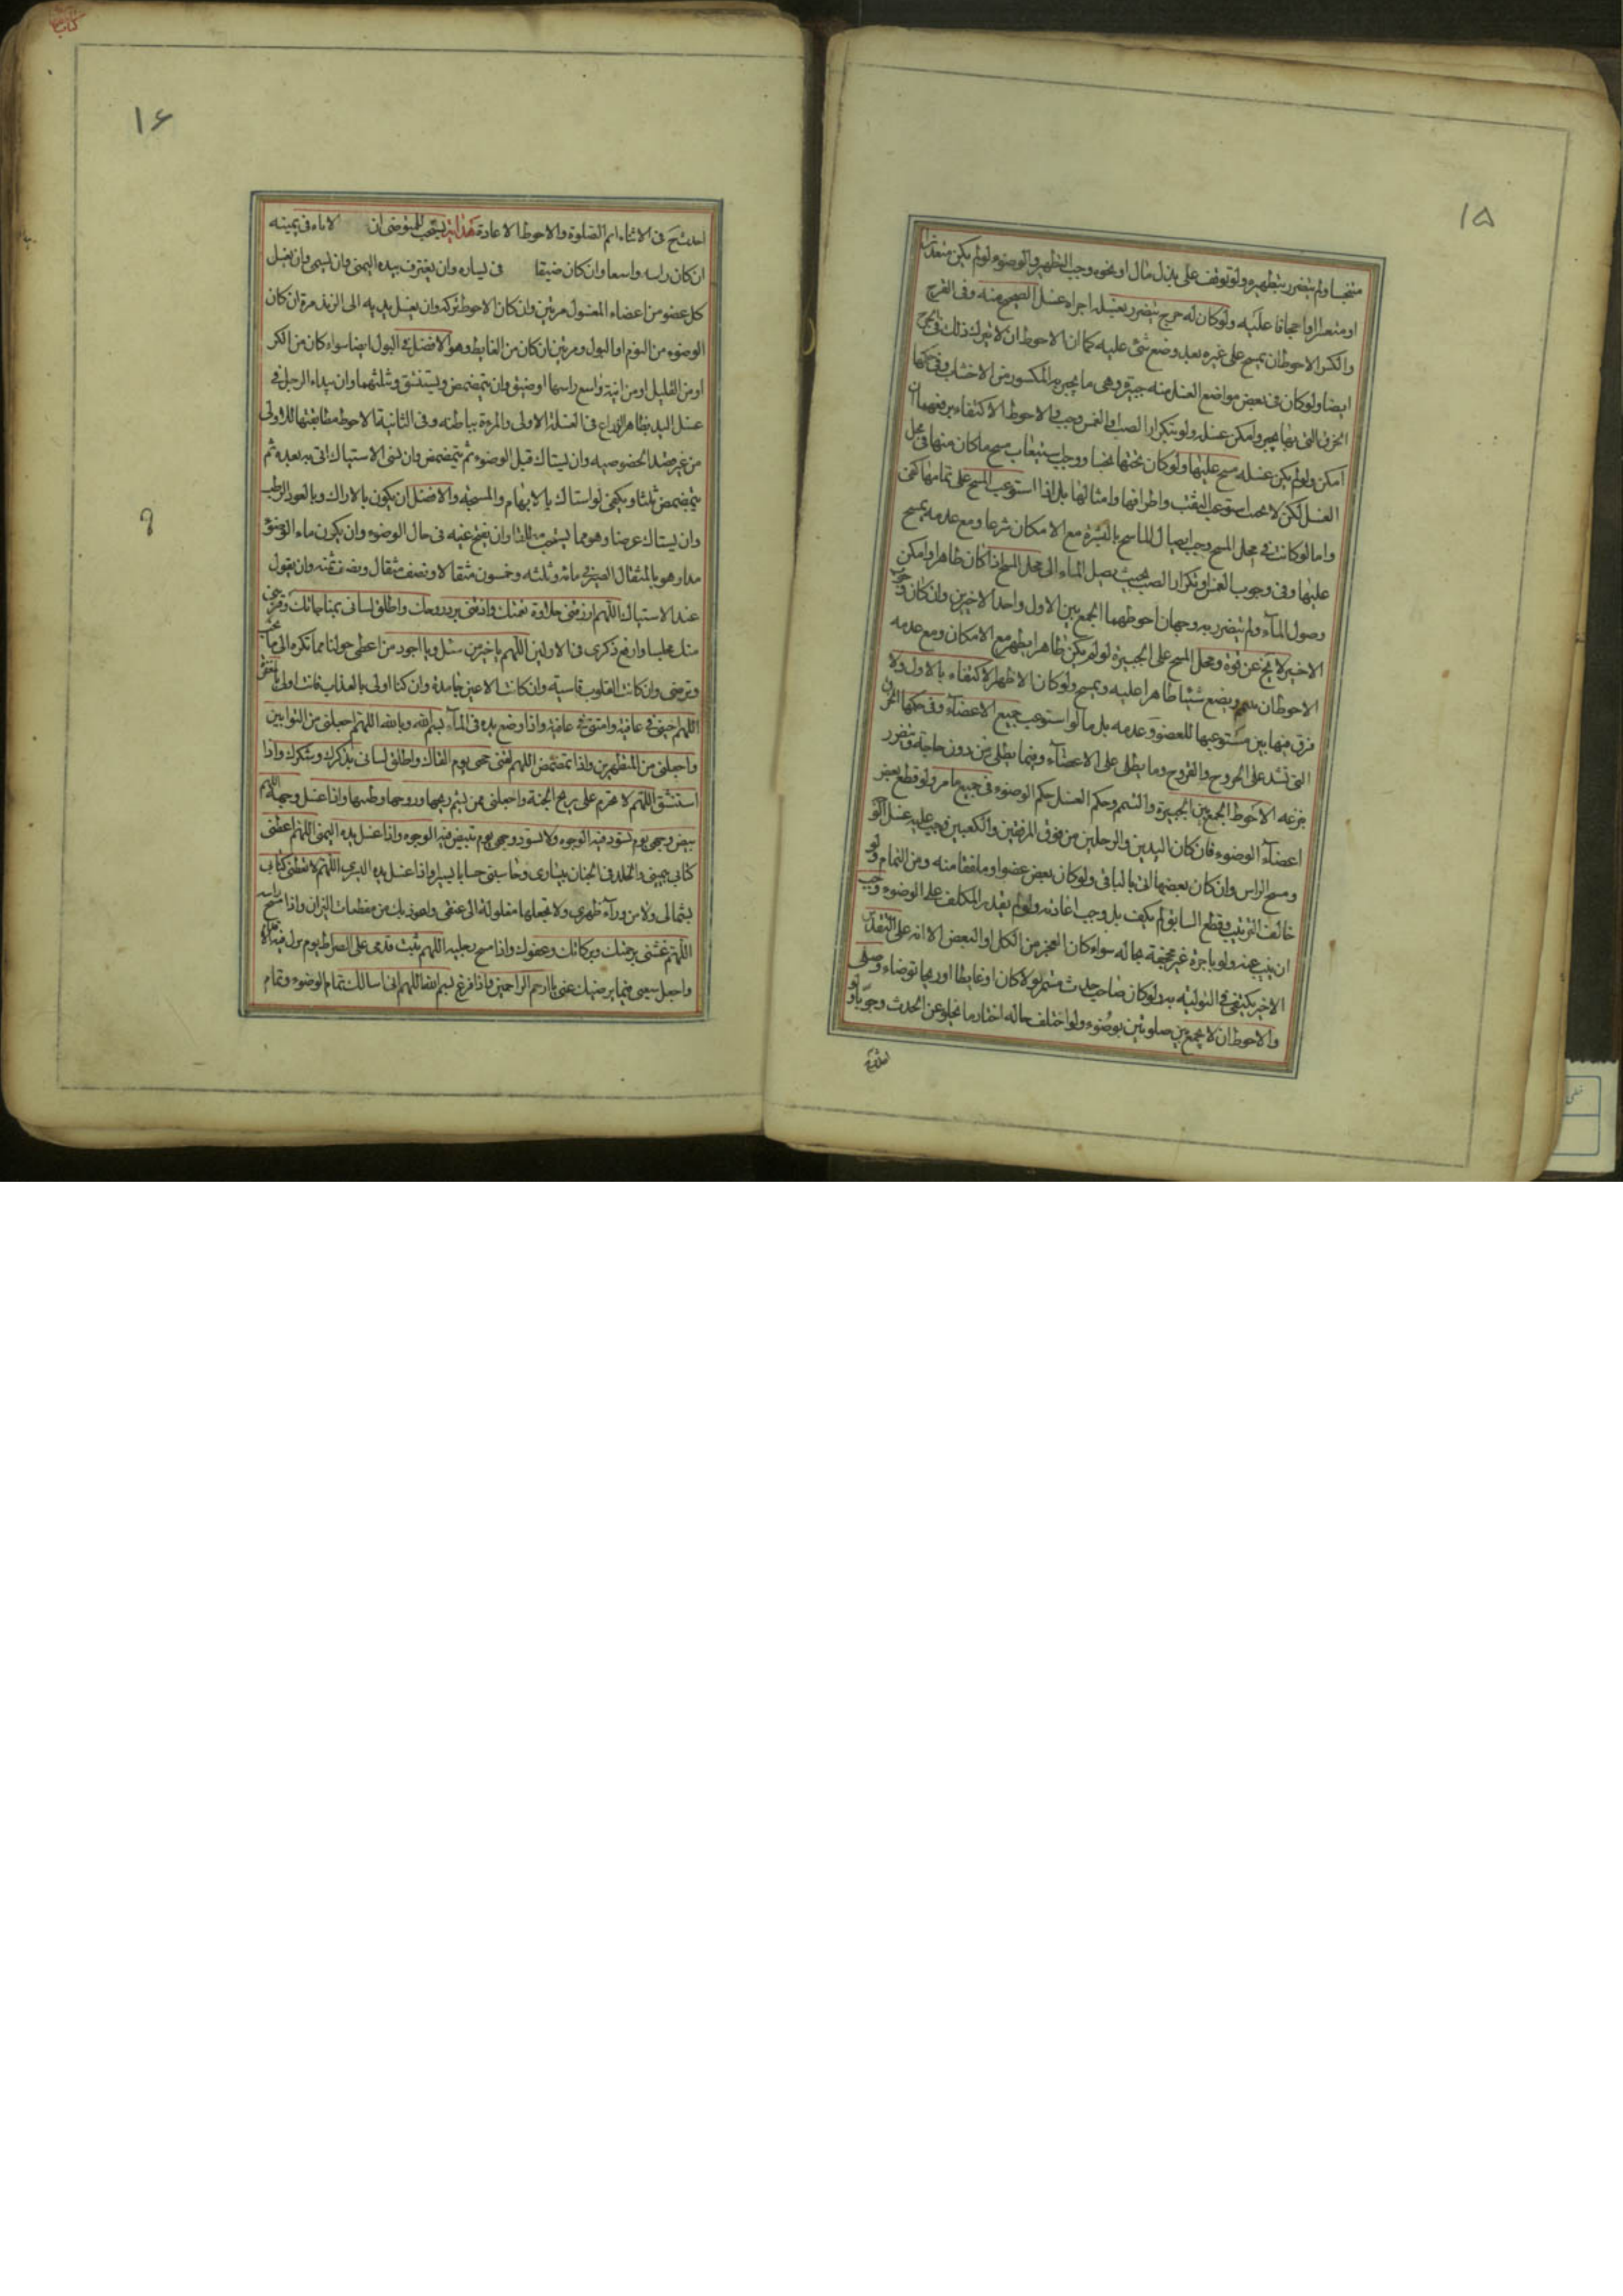 ١٥
متنجسا ولم يتضرر بتطهيره ولو توقف على بذل مال او نحوه وجب التطهير والوضوء ولو لم يكن متعذرا
او متعسرا او اجحافا عليه ولو كان له جرح يتضرر بغسله اجزاه غسل الصحيح منه وفى القرح
والكسر الاحوط ان يمسح على غيره بعد وضع شئ عليه كما ان الاحوط ان لا يترك ذلك فى الجرح
ايضا ولو كان فى بعض مواضع الغسل منه جبيرة وهى ما يجبر به المكسور من الاخشاب وفى حكمها
الخرق التى بها يجبر وامكن غسله ولو بتكرار الصب او الغمس وجب والاحوط الاكتفاء برفعهما ان
امكن ولو لم يكن غسله مسح عليها ولو كان تحتها نجسا ووجب استيعاب مسح ما كان منها فى محل
الغسل لكن لا يجب استوعب الثقب واطرافها وامثالها بل اذا استوعب المسح على تمامها كفى
واما لو كانت فى محل المسح وجب ايصال الماسح بالبشرة مع الامكان شرعا ومع عدمه يمسح
عليها وفى وجوب الغمس او تكرار الصب بحيث يصل الماء الى محل المسح اذا كان طاهرا وامكن
وصول الماء ولم يتضرر به وجهان احوطهما الجمع بين الاول واحد الاخيرين وان كان وجوب
الاخير لا يخ عن قوة ومحل المسح على الجبيرة لو لم يكن طاهرا يطهر مع الامكان ومع عدمه
الاحوط ان يتيمم ويضع شيئا طاهرا عليه ويمسح ولو كان الاظهر الاكتفاء بالاول ولا
فرق فيها بين مستوعبها للعضو وعدمه بل ما لو استوعب جميع الاعضاء وفى حكمها الخرق
التى تشد على الجروح والقروح وما يطلى على الاعضاء وفيما يطلى من دون حاجة ويتضرر
بنزعه الاحوط الجمع بين الجبيرة والتيمم وحكم الغسل حكم الوضوء فى جميع ما مر ولو قطع بعض
اعضاء الوضوء فان كان اليدين والرجلين من فوق المرفقين والكعبين وجب عليه غسل الوجه
ومسح الراس وان كان بعضها اتى بالباقى ولو كان بعض عضو او ما نقص منه ومن التمام ولو
خالف الترتيب وقطع السابق لم يكف بل وجب اعادته ولو لم يقدر المكلف على الوضوء وجب
ان ينيب عنه ولو باجرة غير مجحفة بحاله سواء كان العجز من الكل او البعض الا انه على التقدير
الاخير يكتفى فى التولية به ولو كان صاحب حدث مستمر بولا كان او غايطا او ريحا توضاء وصلى
والاحوط ان لا يجمع بين صلوتين بوضوء ولو اختلف حاله اختار ما يخلو عن الحدث وجوبا ولو
١۶
احدث ح فى الاثناء اتم الصلوة والاحوط الاعادة هداية يستحب للمتوضى ان الاناء فى يمينه
ان كان راسه واسعا وان كان ضيقا فى يساره وان يغترف بيده اليمنى وان يسمى وان يغسل
كل عضو من اعضاء المغسول مرتين وان كان الاحوط تركه وان يغسل يديه الى الزند مرة ان كان
الوضوء من النوم او البول ومرتين ان كان من الغايط وهو الافضل فى البول ايضا سواء كان من الكر
او من القليل او من انية واسع راسها او ضيق وان يتمضمض ويستنشق وتثليثهما وان يبداء الرجل فى
غسل اليد بظاهر الذراع فى الغسلة الاولى والمرءة بباطنه وفى الثانية الاحوط مطابقتها للاولى
من غير قصد الخصوصيه وان يستاك قبل الوضوء ثم يتمضمض وان نسى الاستياك اتى به بعده ثم
يتمضمض ثلثا ويكفى لو استاك بالابهام والمسبحه والافضل ان يكون بالاراك وبالعود الرطب
وان يستاك عرضا وهو مما يستحب مطلقا وان يفتح عينيه فى حال الوضوء وان يكون ماء الوضوء
مدا وهو بالمثقال الصيرفى مائة وثلثه وخمسون مثقالا ونصف مثقال ونصف ثمنه وان يقول
عند الاستياك اللهم ارزقنى حلاوة نعمتك واذقنى برد روحك واطلق لسانى بمناجاتك وقربنى
منك مجلسا وارفع ذكرى فى الاولين اللهم يا خير من سئل ويا اجود من اعطى حولنا مما تكره الى ما تحب
وترضى وان كانت القلوب قاسيه وان كانت الاعين جامدة وان كنا اولى بالعذاب فانت اولى بالمغفرة
اللهم احينى فى عافية وامتنى فى عافية واذا وضع يده فى الماء بسم الله وبالله اللهم اجعلنى من التوابين
واجعلنى من المتطهرين واذا تمضمض اللهم لقنى حجتى يوم القاك واطلق لسانى بذكرك وشكرك واذا
استنشق اللهم لا تحرم على ريح الجنة واجعلنى ممن يشم ريحها وروحها وطيبها واذا غسل وجهه اللهم
بيض وجهى يوم تسود فيه الوجوه ولا تسود وجهى يوم تبيض فيه الوجوه واذا غسل يده اليمنى اللهم اعطنى
كتابى بيمينى والخلد فى الجنان بيسارى وحاسبنى حسابا يسيرا واذا غسل يده اليسرى اللهم لا تعطنى كتابى
بشمالى ولا من وراء ظهرى ولا تجعلها مغلولة الى عنقى واعوذ بك من مقطعات النيران واذا مسح راسه
اللهم غشنى برحمتك وبركاتك وعفوك واذا مسح رجليه اللهم ثبت قدمى على الصراط يوم تزل فيه الاقدام
واجعل سعيى فيما يرضيك عنى يا ارحم الراحمين واذا فرغ بسم الله اللهم انى اسالك تمام الوضوء وتمام